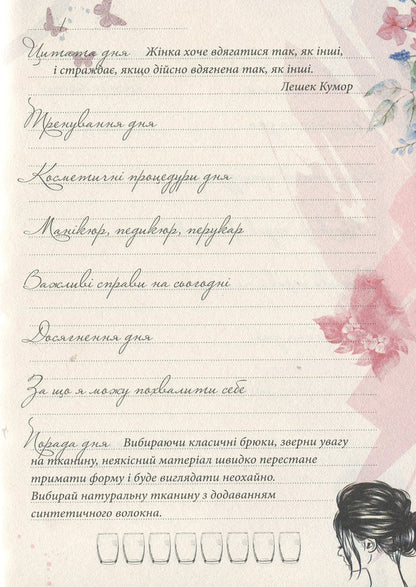 Цитата дня Жінка хоче вдягатися так, як інші,
і страждає, якщо дійсно вдягнена так, як інші.
Лешек Кумор
Тренування дня
Косметичні процедури дня
Манікюр, педикюр, перукар
Важливі справи на сьогодні
Досягнення дня
За що я можу похвалити себе
Порада дня Вибираючи класичні брюки, зверни увагу
на тканину, неякісний матеріал швидко перестане
тримати форму і буде виглядати неохайно.
Вибирай натуральну тканину з додаванням
синтетичного волокна.